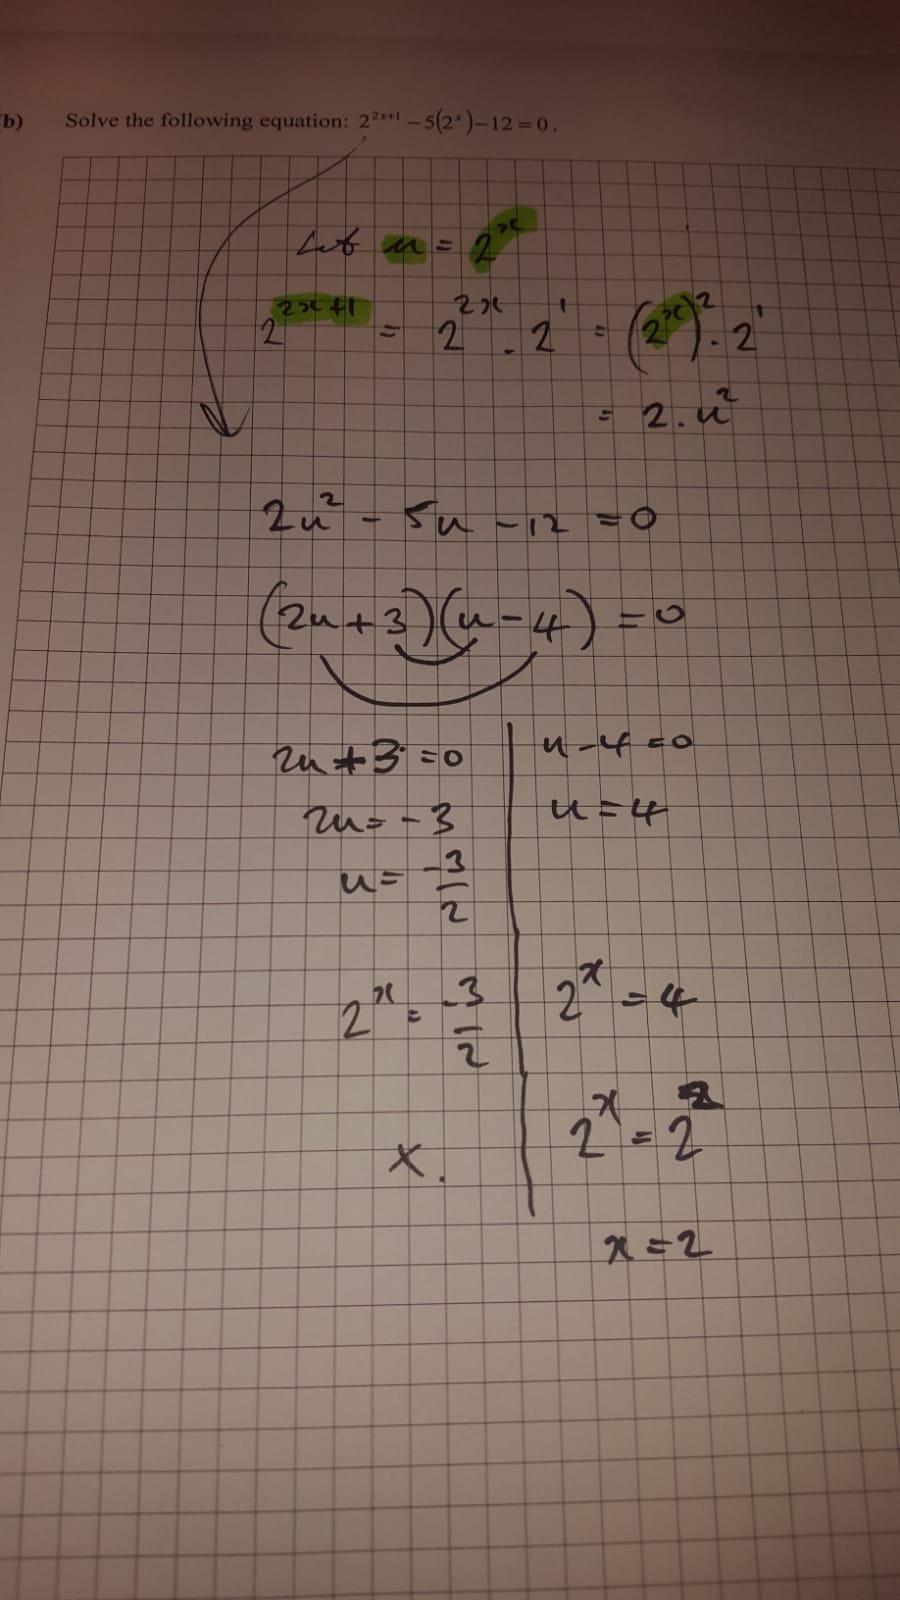 b) Solve the following equation: 2^{2x+1} − 5(2^x) − 12 = 0.
Let u = 2^x
2^{2x+1} = 2^{2x} . 2^1 = (2^x)^2 . 2^1
= 2.u^2
2u^2 - 5u - 12 = 0
(2u + 3)(u - 4) = 0
2u + 3 = 0
2u = -3
u = -3/2
2^x = -3/2
x.
u - 4 = 0
u = 4
2^x = 4
2^x = 2^2
x = 2